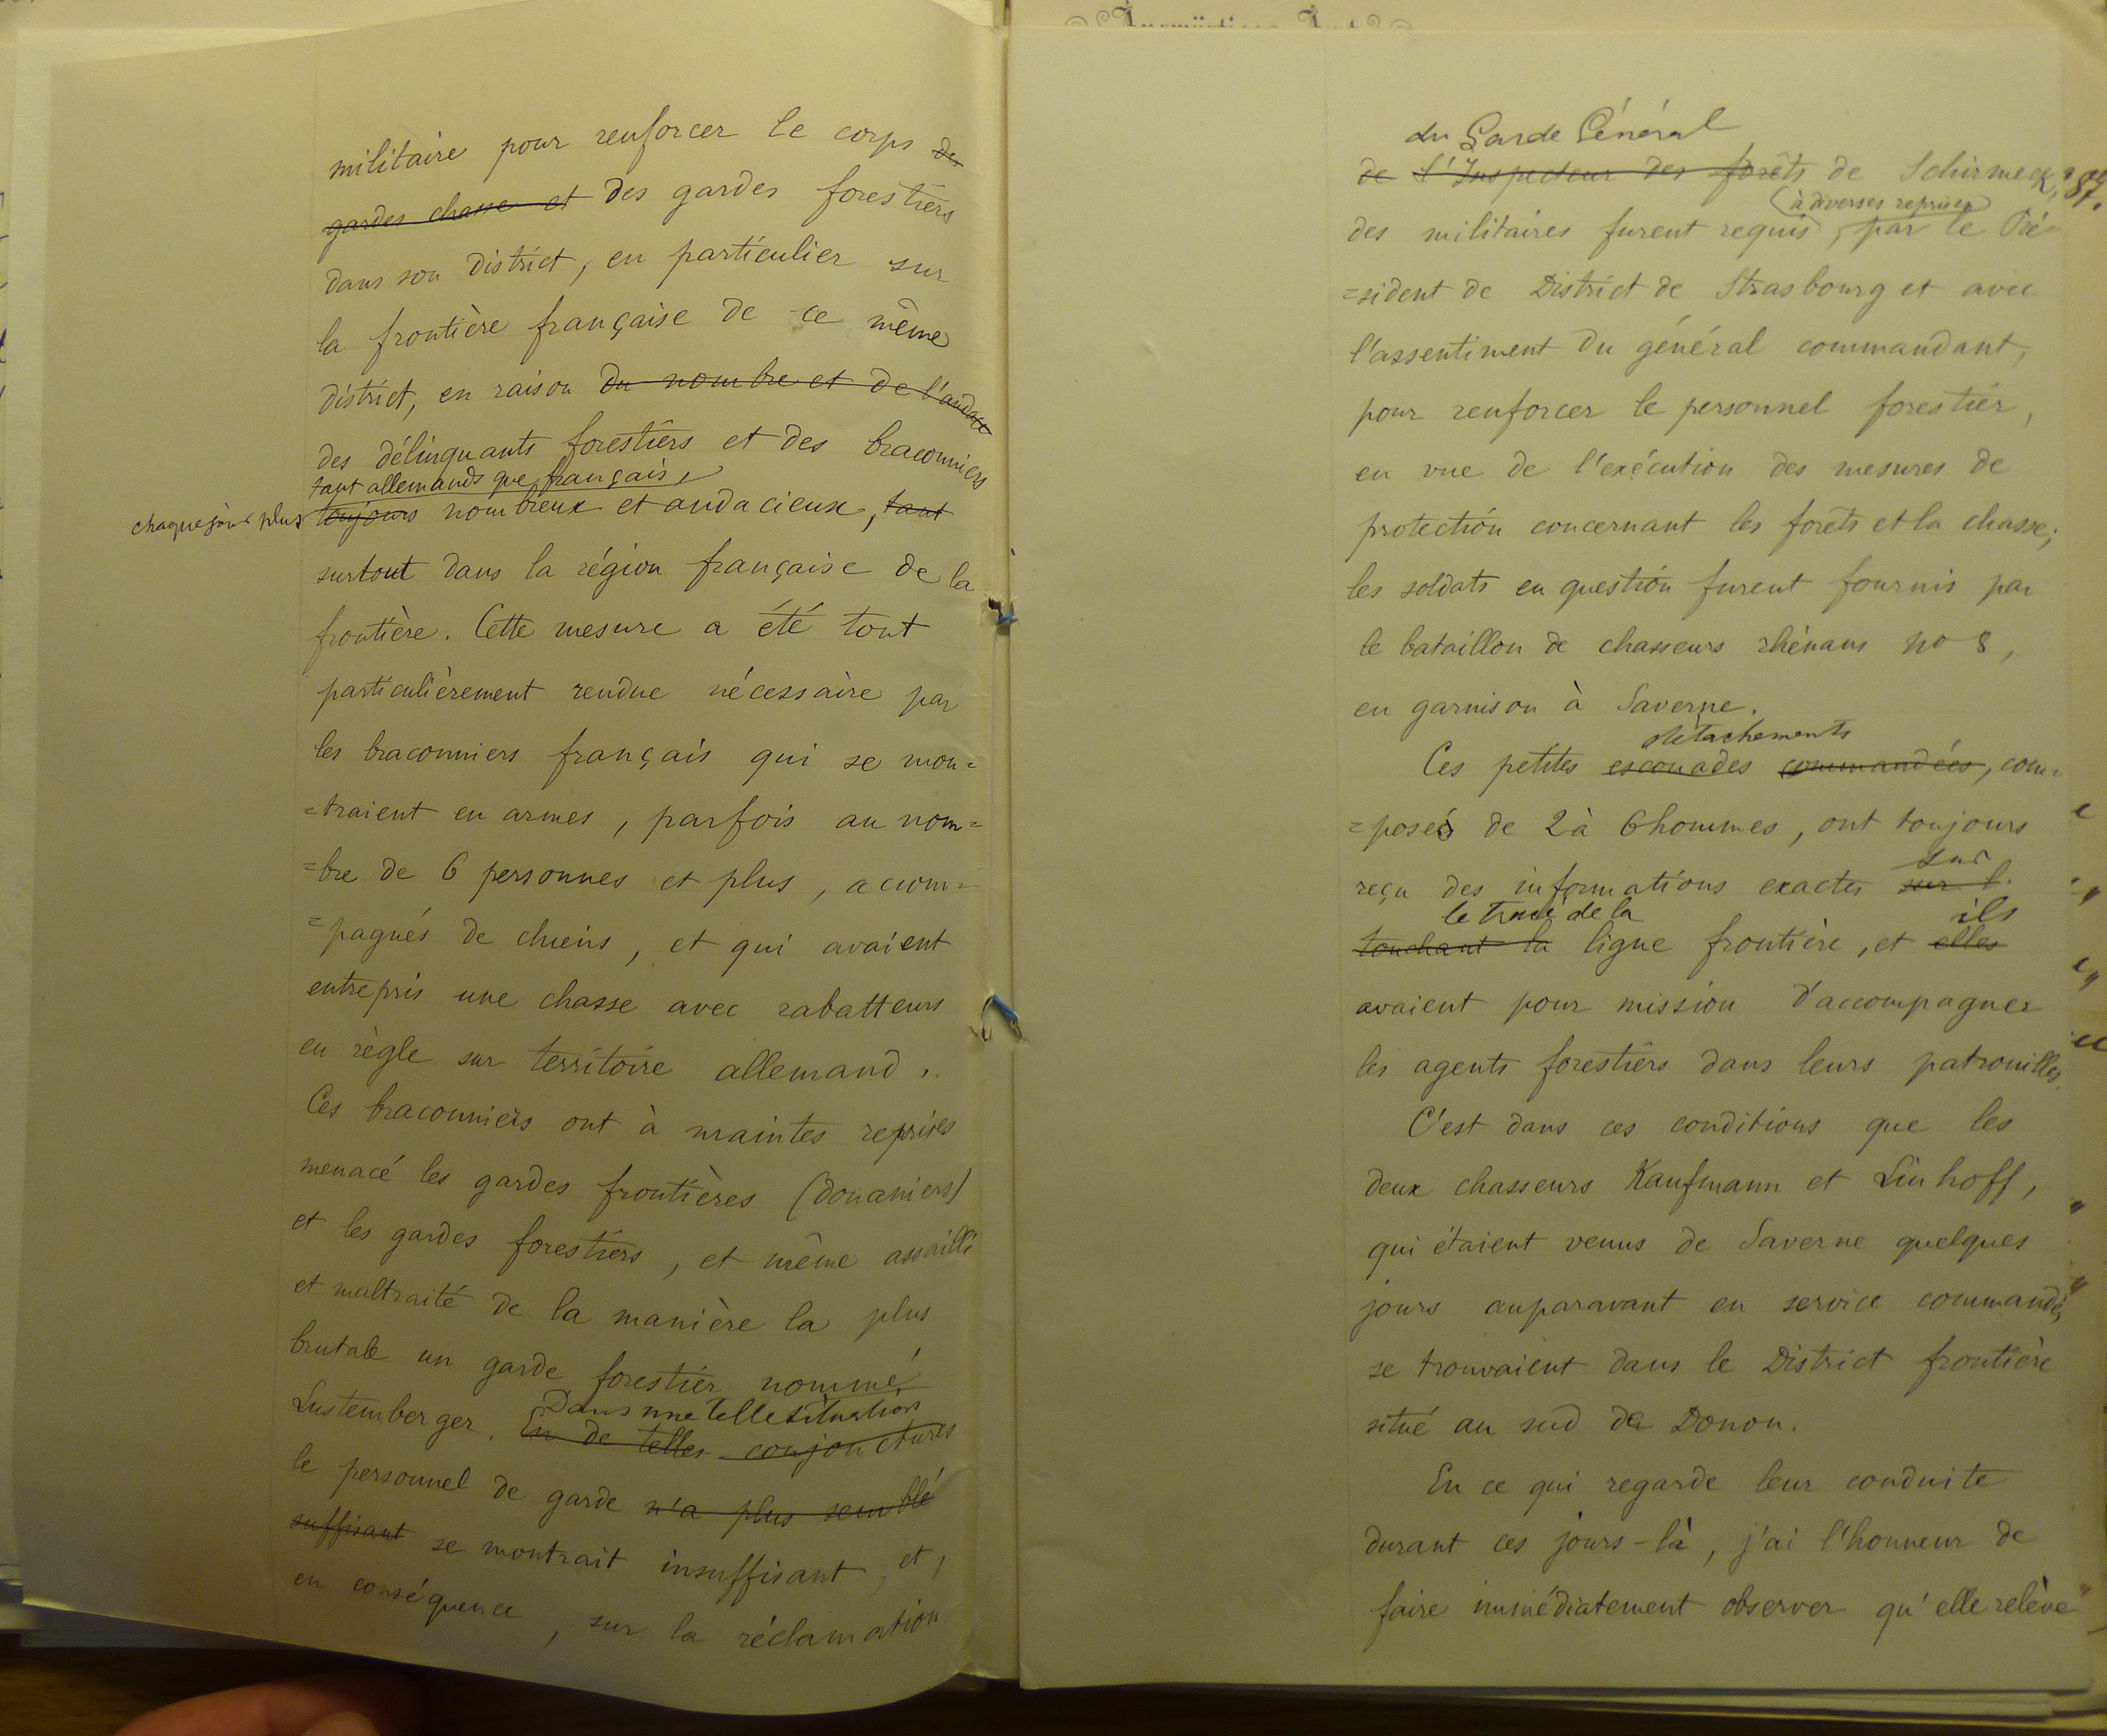 militaire pour renforcer le corps des
gardes chasse et des gardes forestiers
dans son district, en particulier sur
la frontière française de ce même
district, en raison du nombre et de l'audace
des délinquants forestiers et des braconniers
tant allemands que français,
chaque jour plus toujours nombreux et audacieux, tant
surtout dans la région française de la
frontière. Cette mesure a été tout
particulièrement rendue nécessaire par
les braconniers français qui se mon=
=traient en armes, parfois au nom=
=bre de 6 personnes et plus, accom=
=pagnés de chiens, et qui avaient
entrepris une chasse avec rabatteurs
en règle sur territoire allemand.
Ces braconniers ont à maintes reprises
menacé les gardes frontières (douaniers)
et les gardes forestiers, et même assailli
et maltraité de la manière la plus
brutale un garde forestier nommé
Lustemberger. Dans une telle situation
En de telles conjonctures
le personnel de garde n'a plus semblé
suffisant se montrait insuffisant, et,
en conséquence, sur la réclamation
du Garde Général
de l'Inspecteur des forêts de Schirmeck,
(à diverses reprises)
des militaires furent requis, par le Pré=
=sident de District de Strasbourg et avec
l'assentiment du général commandant,
pour renforcer le personnel forestier,
en vue de l'exécution des mesures de
protection concernant les forêts et la chasse;
les soldats en question furent fournis par
le bataillon de chasseurs rhénans no 8,
en garnison à Saverne.
détachements
Ces petites escouades commandées, com=
=posés de 2 à 6 hommes, ont toujours
sur
reçu des informations exactes sur l.
le tracé de la ils
touchant la ligne frontière, et elles
avaient pour mission d'accompagner
les agents forestiers dans leurs patrouilles.
C'est dans ces conditions que les
deux chasseurs Kaufmann et Linhoff,
qui étaient venus de Saverne quelques
jours auparavant en service commandé,
se trouvaient dans le District frontière
situé au sud du Donon.
En ce qui regarde leur conduite
durant ces jours-là, j'ai l'honneur de
faire immédiatement observer qu'elle relève